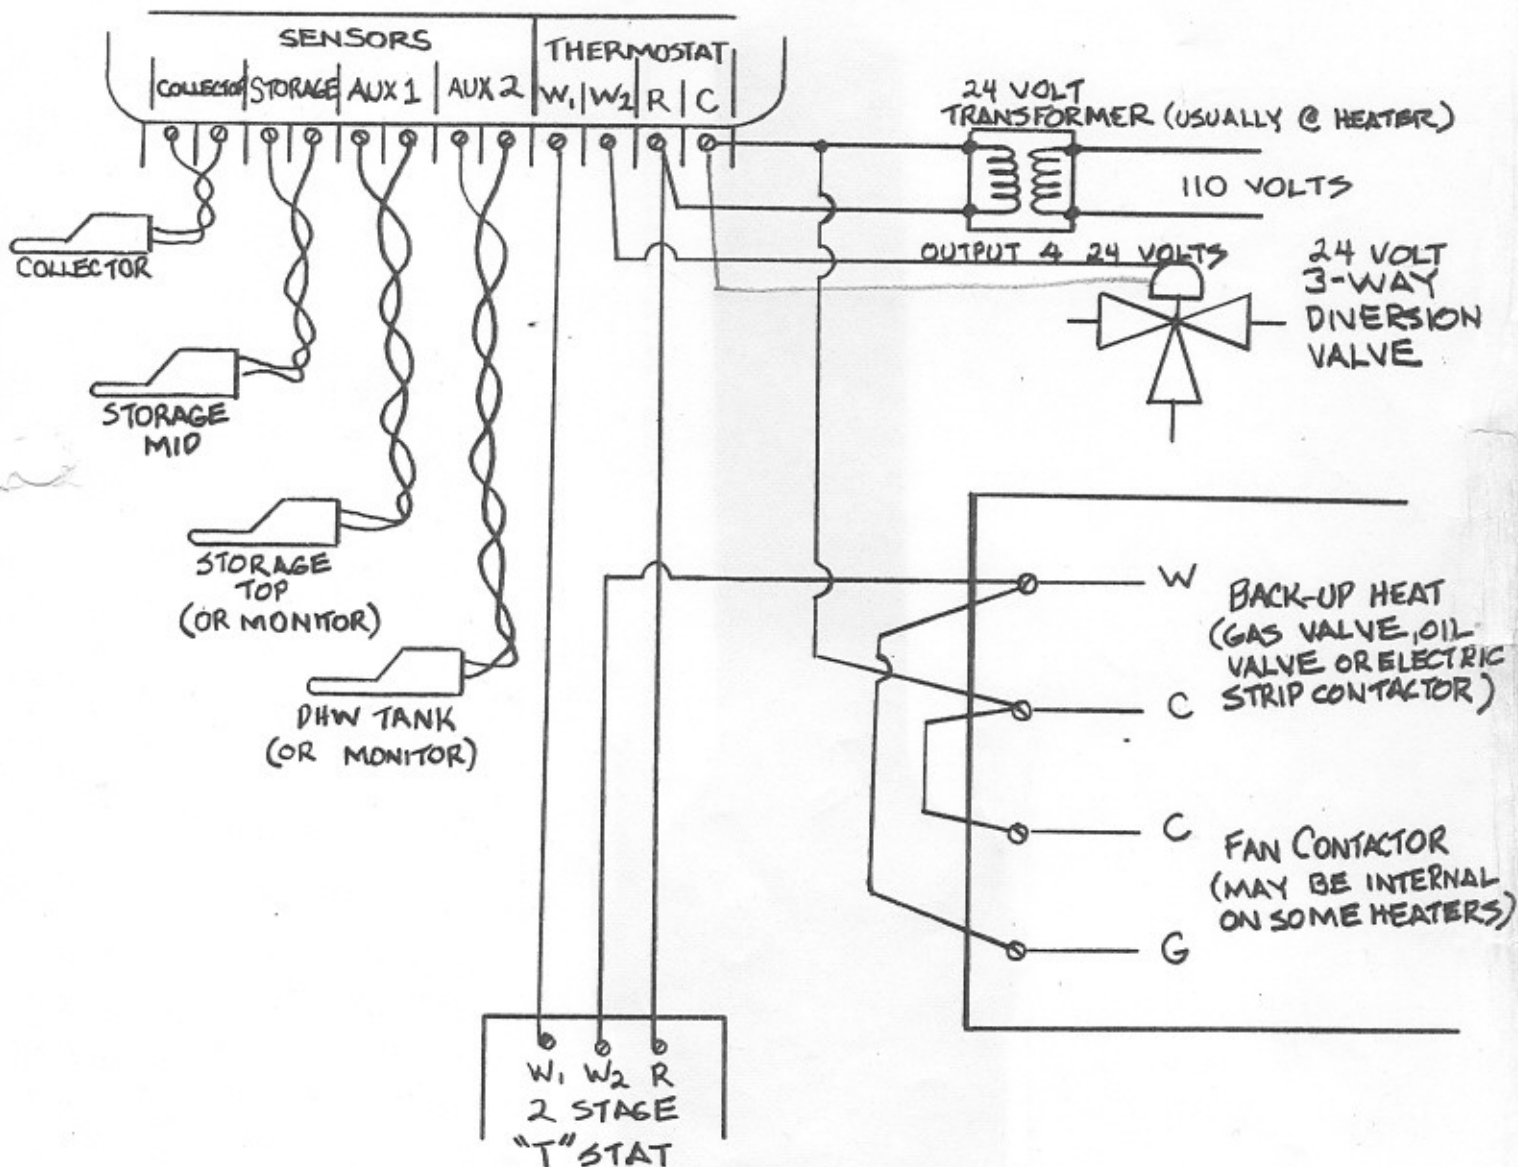 SENSORS
THERMOSTAT
COLLECTOR STORAGE AUX 1 AUX 2 W1 W2 R C
24 VOLT
TRANSFORMER (USUALLY @ HEATER)
110 VOLTS
OUTPUT 4 24 VOLTS
24 VOLT
3-WAY
DIVERSION
VALVE
COLLECTOR
STORAGE
MID
STORAGE
TOP
(OR MONITOR)
DHW TANK
(OR MONITOR)
W
BACK-UP HEAT
(GAS VALVE, OIL
VALVE OR ELECTRIC
STRIP CONTACTOR)
C
C
FAN CONTACTOR
(MAY BE INTERNAL
ON SOME HEATERS)
G
W1 W2 R
2 STAGE
"T" STAT